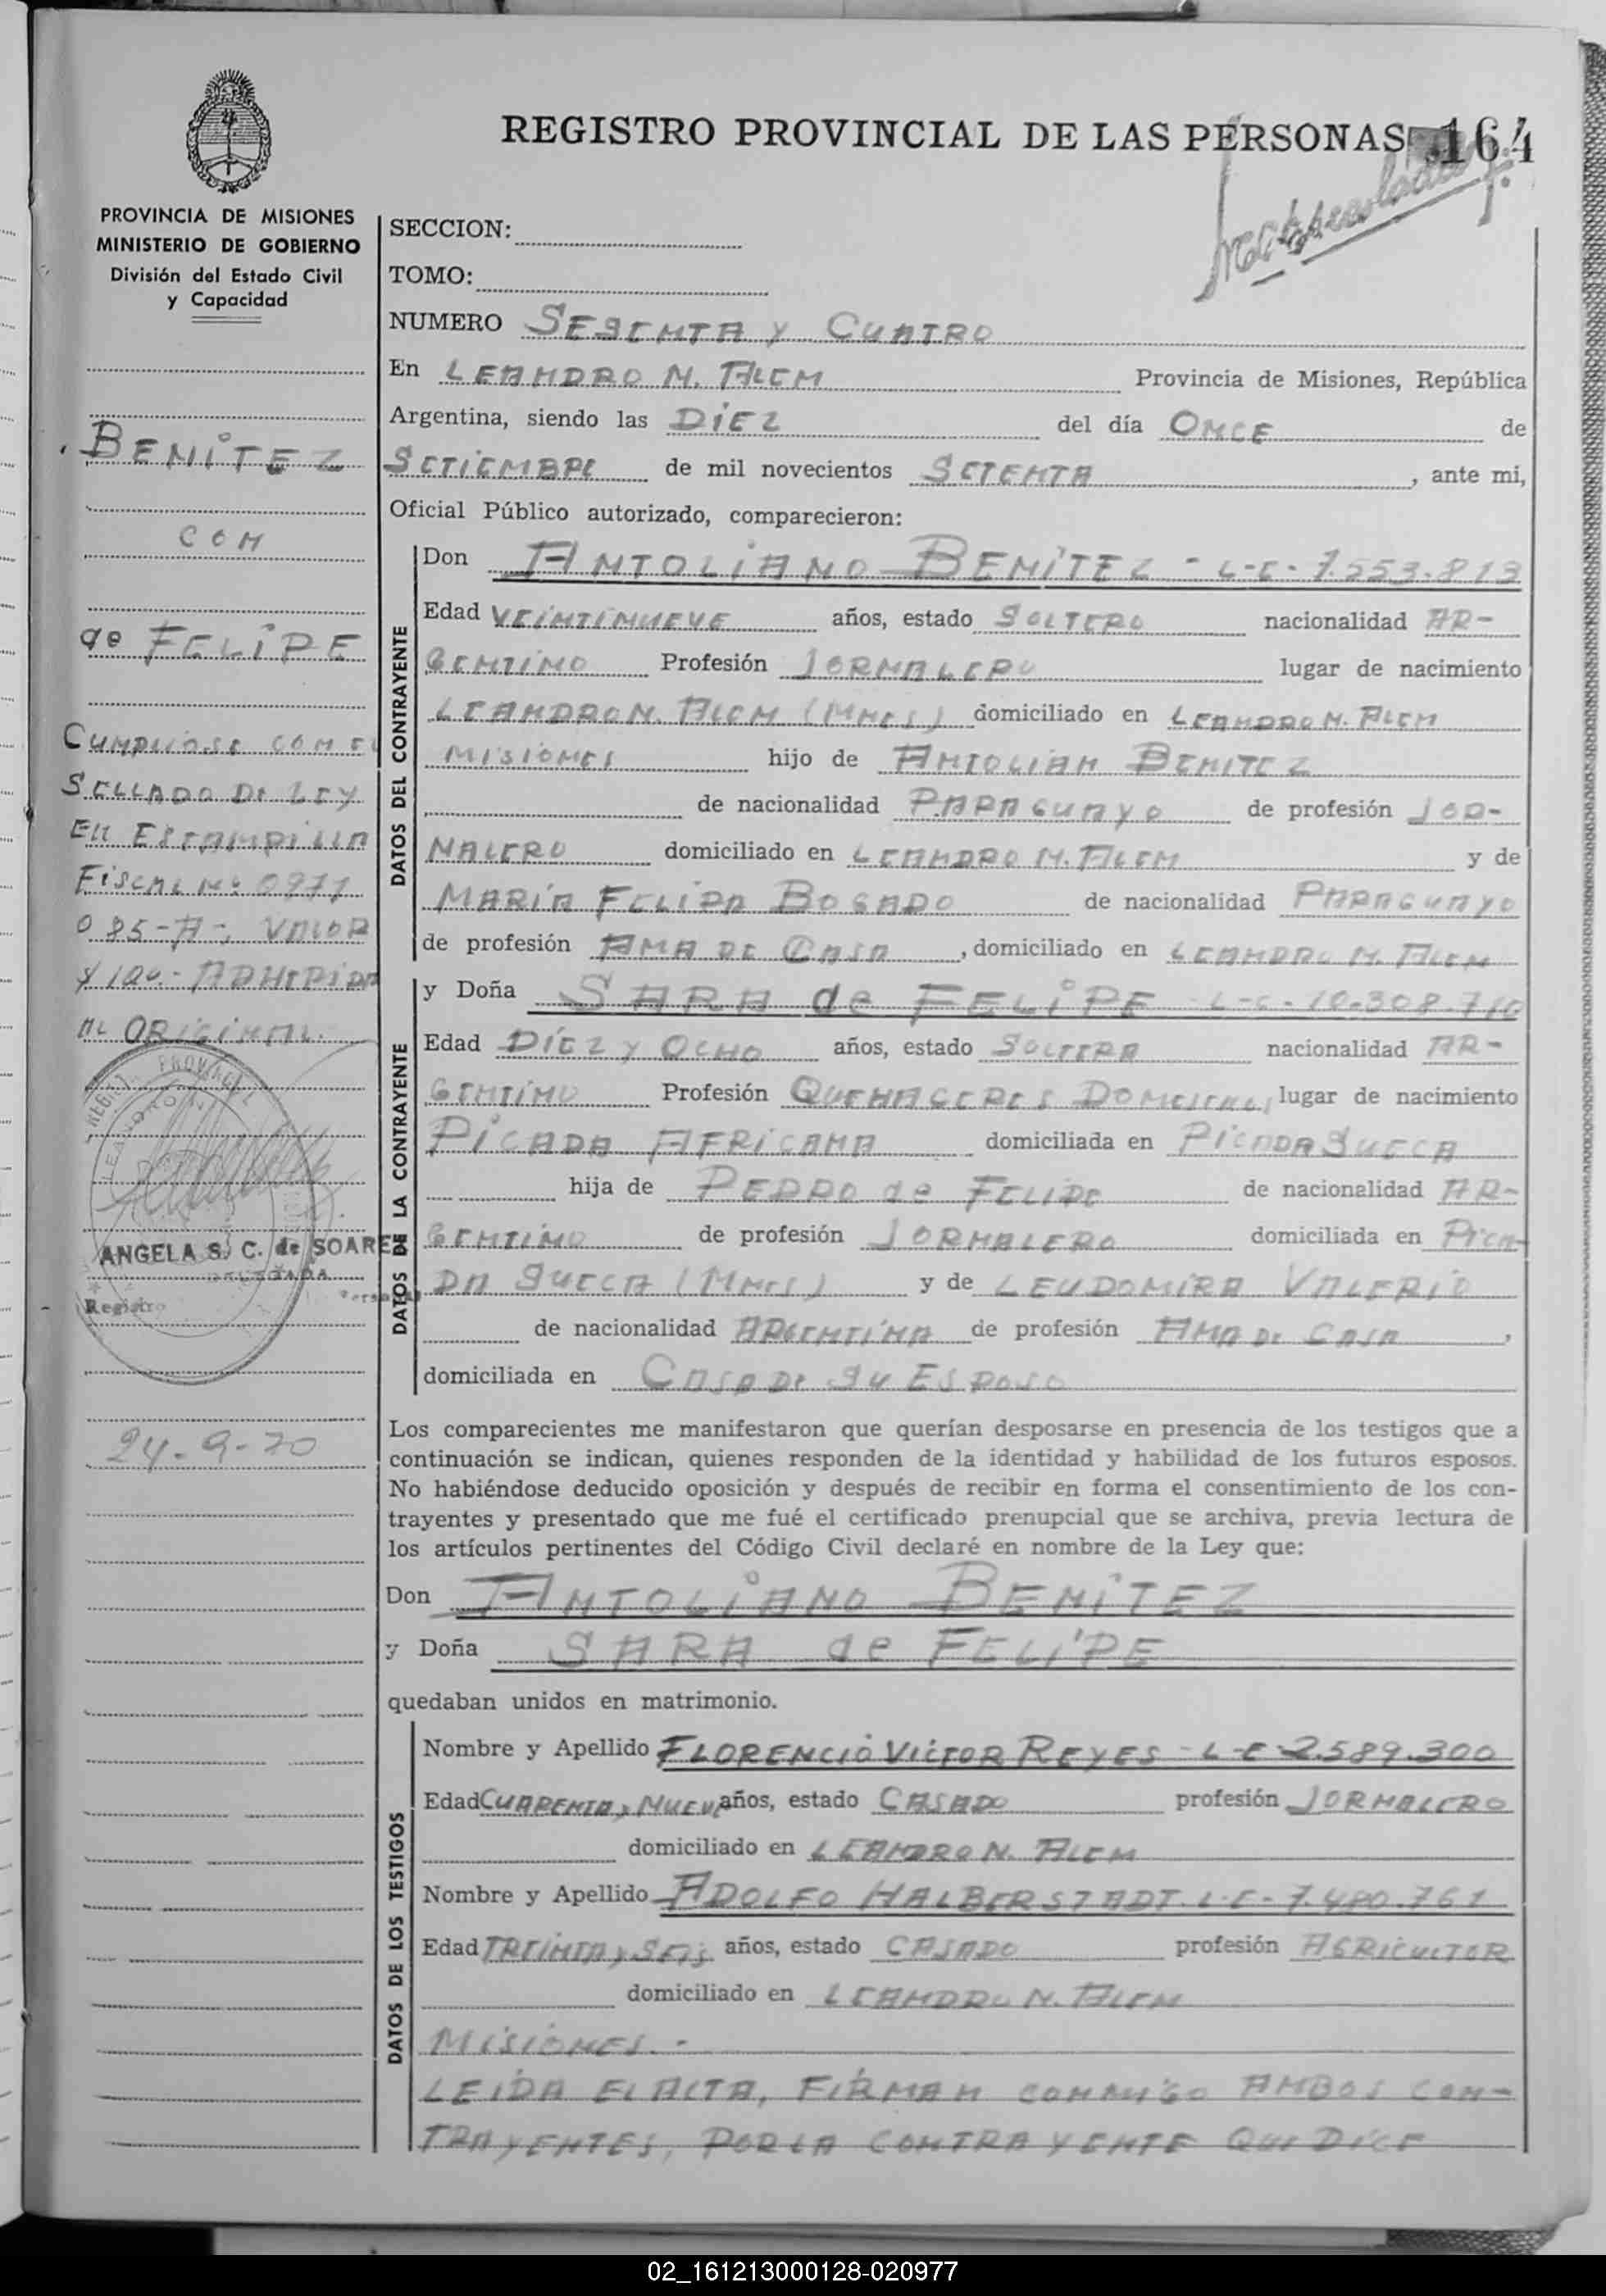 REGISTRO PROVINCIAL DE LAS PERSONAS
164
Matriculada
PROVINCIA DE MISIONES
MINISTERIO DE GOBIERNO
División del Estado Civil
y Capacidad
SECCION:
TOMO:
NUMERO SESENTA Y CUATRO
En LEANDRO N. ALEM Provincia de Misiones, República
Argentina, siendo las DIEZ del día ONCE de
SETIEMBRE de mil novecientos SETENTA, ante mi,
Oficial Público autorizado, comparecieron:
BENITEZ
CON
de FELIPE
CUMPLIOSE CON EL
SELLADO DE LEY
EN ESTAMPILLA
FISCAL Nº 0971
085-A-, VALOR
ADHERIDA
AL ORIGINAL.
ANGELA S. C. de SOAREZ
DELEGADA
Registro
24-9-70
DATOS DEL CONTRAYENTE
Don ANTOLIANO BENITEZ - L-E- 7.553.813
Edad VEINTINUEVE años, estado SOLTERO nacionalidad AR-
GENTINO Profesión JORNALERO lugar de nacimiento
LEANDRO N. ALEM (MNES) domiciliado en LEANDRO N. ALEM
MISIONES hijo de ANTOLIAN BENITEZ
de nacionalidad PARAGUAYO de profesión JOR-
NALERO domiciliado en LEANDRO N. ALEM y de
MARIA FELIPA BOGADO de nacionalidad PARAGUAYO
de profesión AMA DE CASA, domiciliado en LEANDRO N. ALEM
DATOS DE LA CONTRAYENTE
y Doña SARA de FELIPE L-C- 10.308.710
Edad DIEZ Y OCHO años, estado SOLTERA nacionalidad AR-
GENTINO Profesión QUEHACERES DOMESTIC, lugar de nacimiento
PICADA AFRICANA domiciliada en PICADA SUECA
hija de PEDRO de FELIPE de nacionalidad AR-
GENTINO de profesión JORNALERO domiciliada en PICA-
DA SUECA (MNES) y de LEUDOMIRA VALERIO
de nacionalidad ARGENTINA de profesión AMA DE CASA,
domiciliada en CASA DE SU ESPOSO
Los comparecientes me manifestaron que querían desposarse en presencia de los testigos que a
continuación se indican, quienes responden de la identidad y habilidad de los futuros esposos.
No habiéndose deducido oposición y después de recibir en forma el consentimiento de los con-
trayentes y presentado que me fué el certificado prenupcial que se archiva, previa lectura de
los artículos pertinentes del Código Civil declaré en nombre de la Ley que:
Don ANTOLIANO BENITEZ
y Doña SARA de FELIPE
quedaban unidos en matrimonio.
DATOS DE LOS TESTIGOS
Nombre y Apellido FLORENCIO VICTOR REYES - L-E- 2.589.300
Edad CUARENTA y NUEVE años, estado CASADO profesión JORNALERO
domiciliado en LEANDRO N. ALEM
Nombre y Apellido ADOLFO HALBERSTADT. L-E- 7.480.761
Edad TREINTA y SEIS años, estado CASADO profesión AGRICULTOR
domiciliado en LEANDRO N. ALEM
MISIONES.-
LEIDA EL ACTA, FIRMAN CONMIGO AMBOS CON-
TRAYENTES, POR LA CONTRAYENTE QUE DICE
02_161213000128-020977